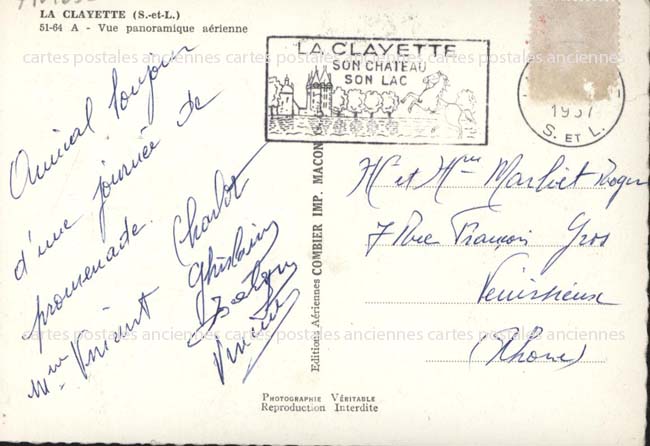 LA CLAYETTE (S.-et-L.)
51-64 A - Vue panoramique aérienne
LA CLAYETTE
SON CHATEAU
SON LAC
1957
S. ET L.
Amical bonjour
d'une journée de
promenade.
Mme Vincent
Charlot
Ghislain
Vincent
Editions Aériennes COMBIER IMP. MACON
M et Mme Marliet Roger
7 Rue François Gros
Venissieux
(Rhone)
PHOTOGRAPHIE VÉRITABLE
Reproduction Interdite
cartes postales anciennes cartes postales anciennes cartes postales anciennes
cartes postales anciennes cartes postales anciennes cartes postales anciennes